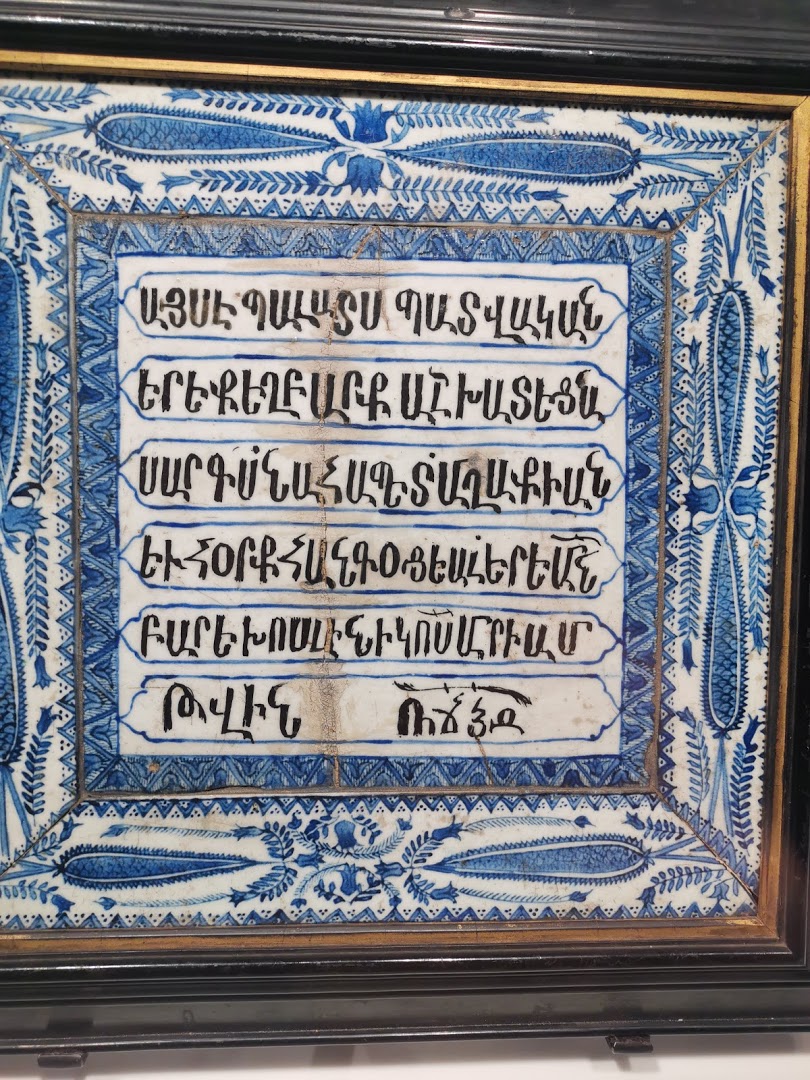 ԱՅՍԷ ՊԱԼԱՏՍ ՊԱՏՎԱԿԱՆ
ԵՐԵՔԵՂԲԱՐՔ ԱՇԽԱՏԵՑՆ
ՍԱՐԳՍՆԱՀԱՊԵՏԱՂԱՔԻԱՆ
ԵՒՀՕՐՔՀԱՆԳՕՑԵԱԼԵՐԵՄԱՆ
ԲԱՐԵԽՈՍԼՆԻԿՈՍՄԱՐԻԱՄ
ԹՎԻՆ ՌՃՀԴ